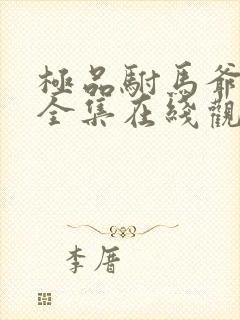 極品駙馬爺
全集在綫觀
李厝